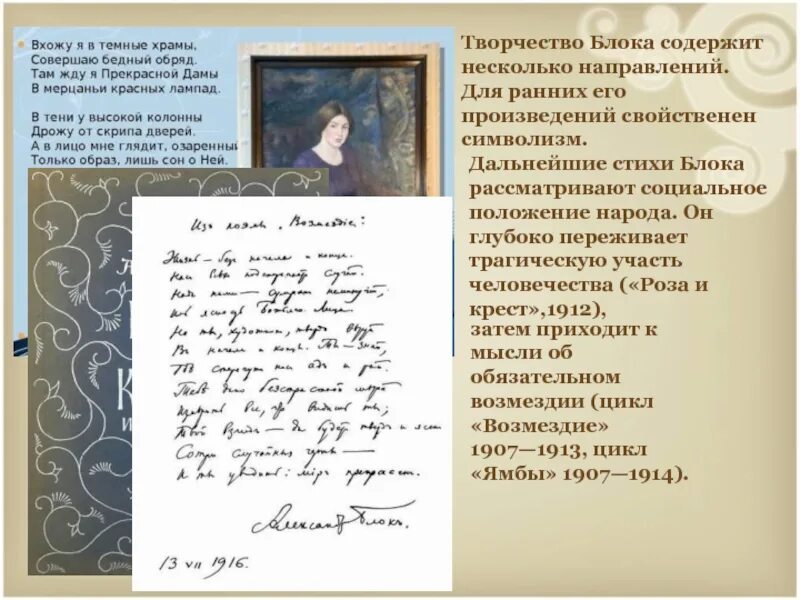 Вхожу я в темные храмы,
Совершаю бедный обряд.
Там жду я Прекрасной Дамы
В мерцаньи красных лампад.
В тени у высокой колонны
Дрожу от скрипа дверей.
А в лицо мне глядит, озаренный
Только образ, лишь сон о Ней.
Изъ поэмы „Возмездіе“:
Жизнь — безъ начала и конца.
Насъ всѣхъ подстерегаетъ случай.
Надъ нами — сумракъ неминучій,
Иль ясность Божьяго Лица.
Но ты, художникъ, твердо вѣруй
Въ начала и концы. Ты — знай,
Гдѣ стерегутъ насъ адъ и рай.
Тебѣ дано безстрастной мѣрой
Измѣрить все, что видишь ты;
Твой взглядъ — да будетъ твердъ и ясенъ
Сотри случайныя черты —
И ты увидишь: міръ прекрасенъ.
Александръ Блокъ.
13 VII 1916.
Творчество Блока содержит
несколько направлений.
Для ранних его
произведений свойственен
символизм.
Дальнейшие стихи Блока
рассматривают социальное
положение народа. Он
глубоко переживает
трагическую участь
человечества («Роза и
крест»,1912),
затем приходит к
мысли об
обязательном
возмездии (цикл
«Возмездие»
1907—1913, цикл
«Ямбы» 1907—1914).